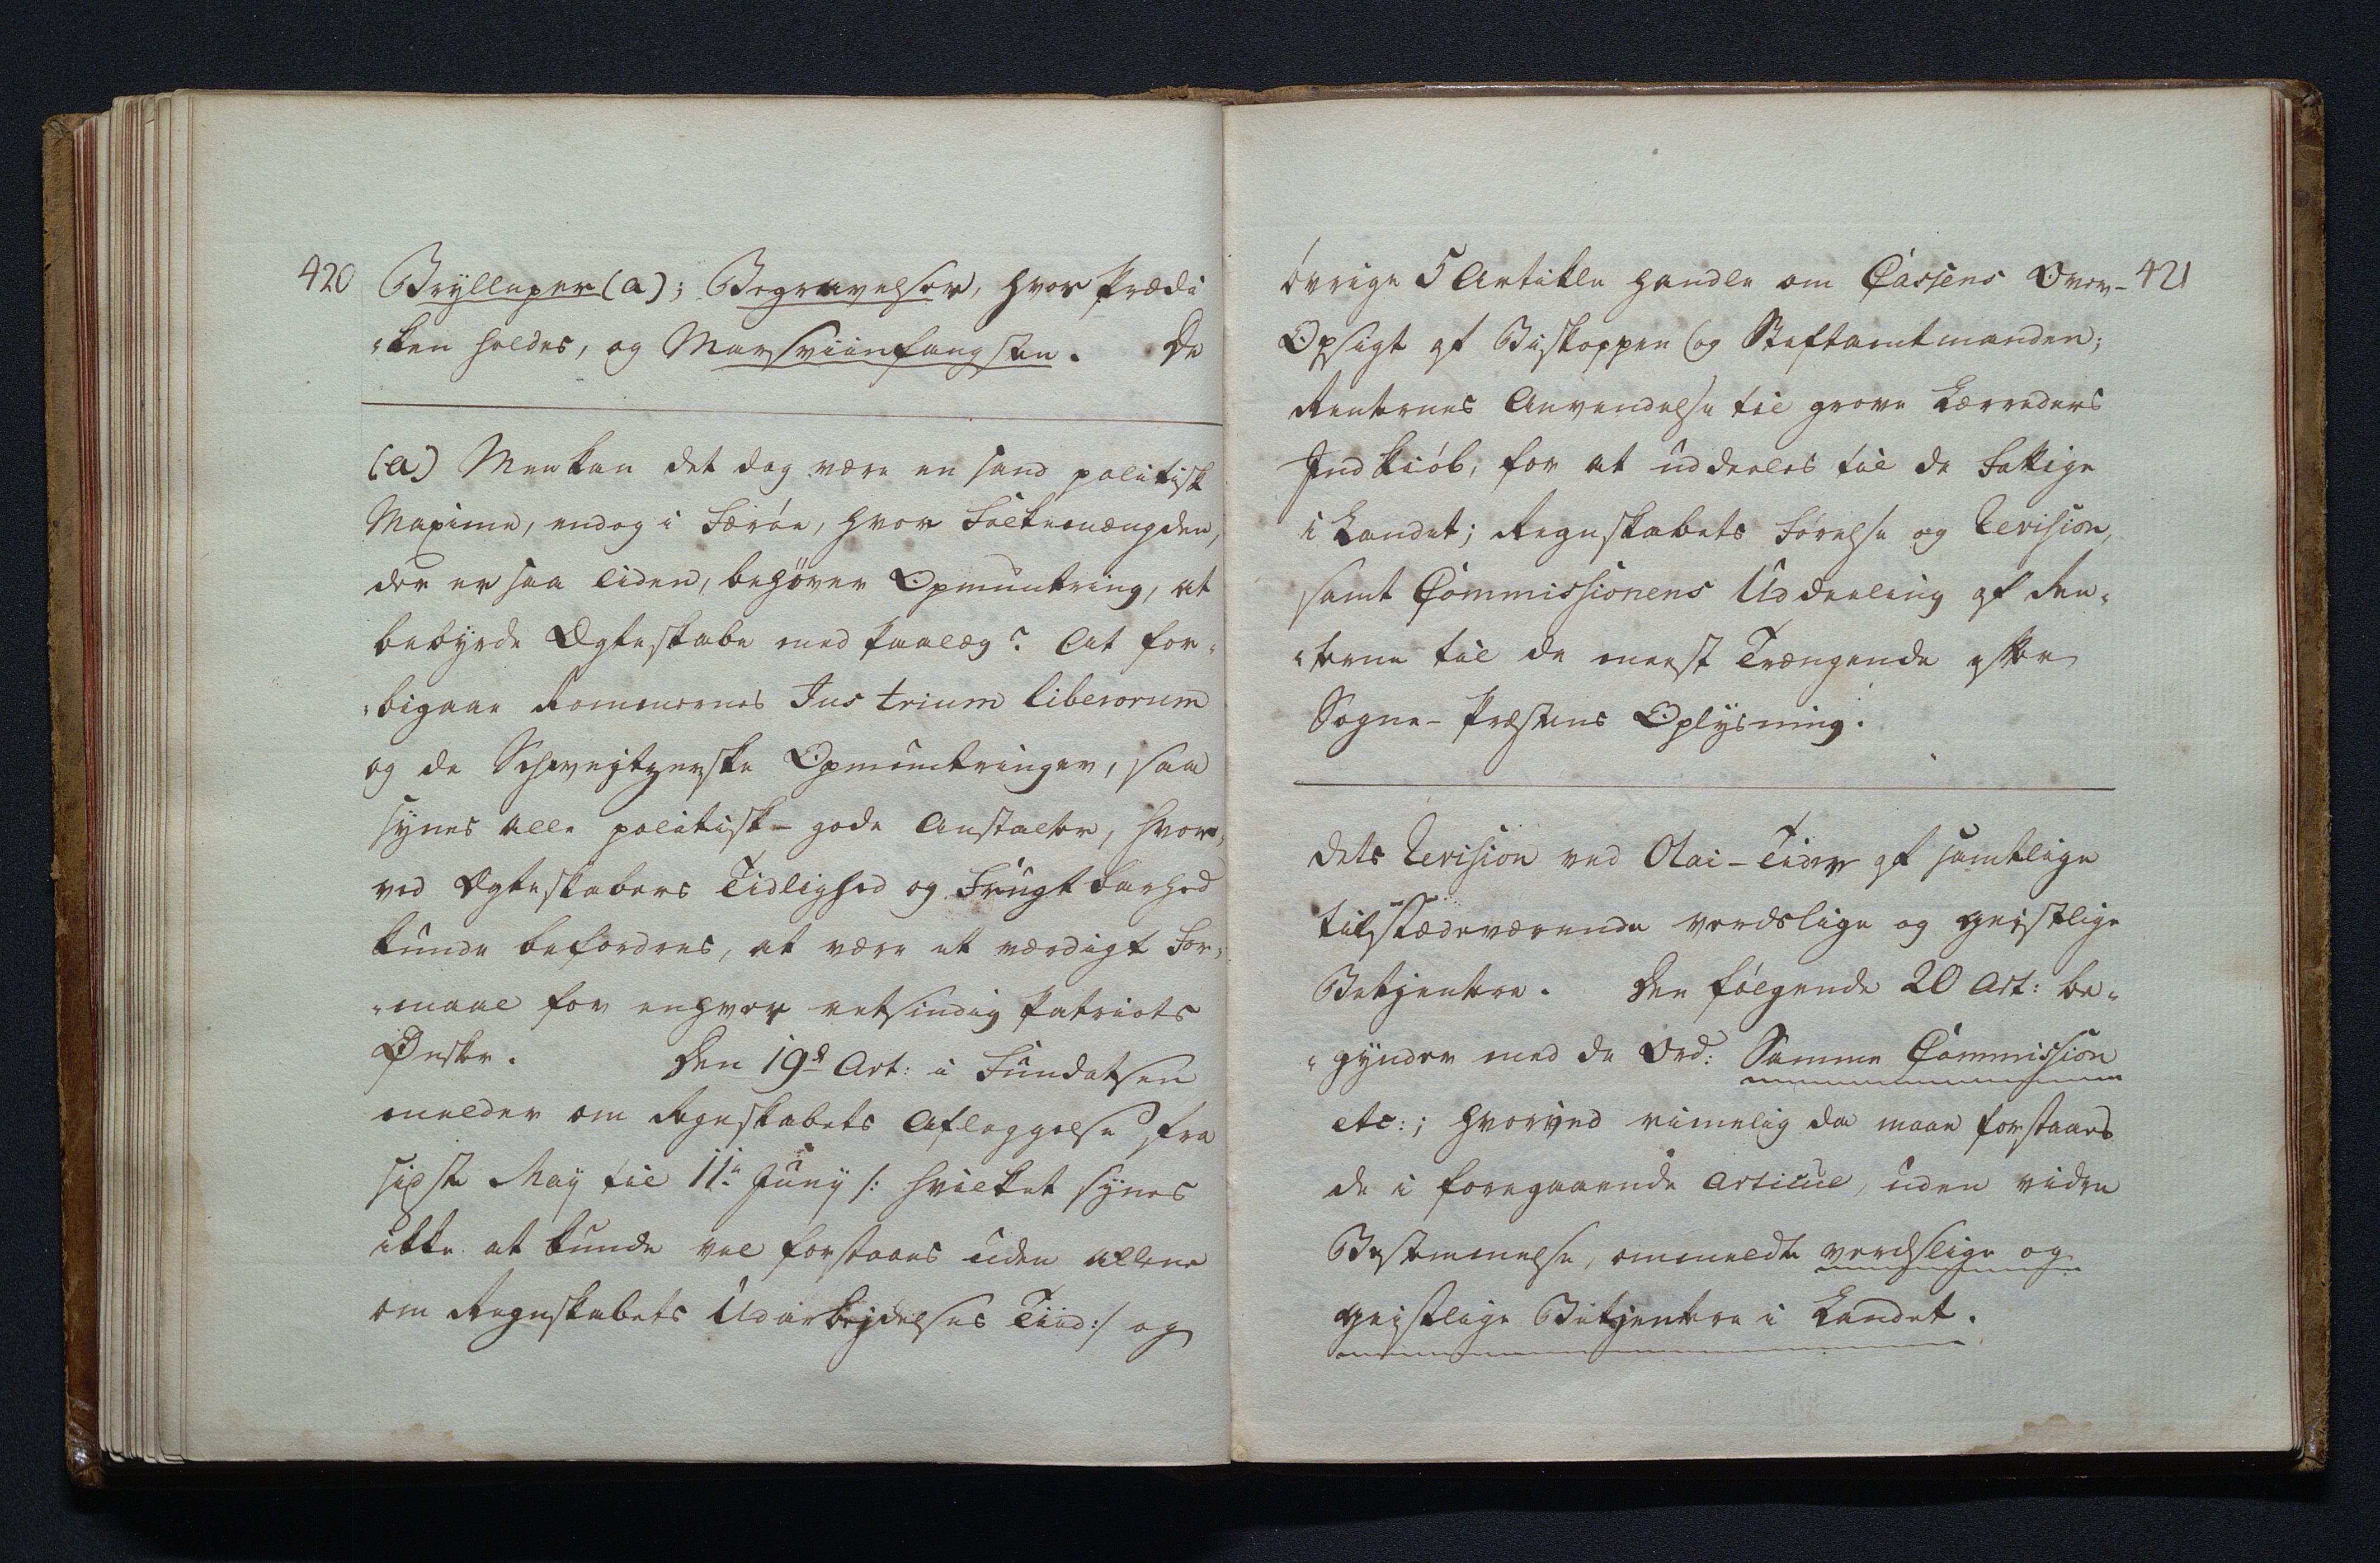 420 Brylluper (a); Begravelser, hvor Prædi
„ken holdes, og Marsviinfangsten. De
(a) Mon kan det dog være en sand politisk
Maxime, endog i Færöe, hvor Folkemængden,
der er saa liden, behöver Opmuntring, at
bebyrde Ægteskabe med Paalæg? At for„
„bigaae Romernes Jus trium liberorum
og de Schweytzerske Opmuntringer, saa
synes alle politisk-gode Anstalter, hvor„
ved Ægteskabers Tidlighed og Frugtbarhed
kunde befordres, at være et værdigt For„
„maal for enhver retsindig Patriots
Ønske. Den 19d Art: i Fundatsen
melder om Regnskabets Aflæggelse fra
sidste May til 11te Juny /: hvilket synes
ikke at kunde vel forstaaes uden allene
om Regnskabets Udarbejdelses Tiid:/ og
övrige 5 Artikle handle om Cassens Over- 421
Opsigt af Biskoppen og Stiftamtmanden;
Renternes Anvendelse til grove Lærreders
Indkiób, for at uddeeles til de Fattige
i Landet; Regnskabets Førelse og Revision,
samt Commissionens Uddeeling af Ren„
„terne til de meest Trængende efter
Sogne-Præstens Oplysning.
dets Revision ved Olai-Tider af samtlige
tilstædeværende verdslige og geistlige
Betjentere. Den fólgende 20 Art: be„
„gynder med de Ord: Samme Commission
etc:; hvorved rimelig da maae forstaaes
de i foregaaende Articul, uden videre
Bestemmelse, ommeldte verdslige og
geistlige Betjentere i Landet.